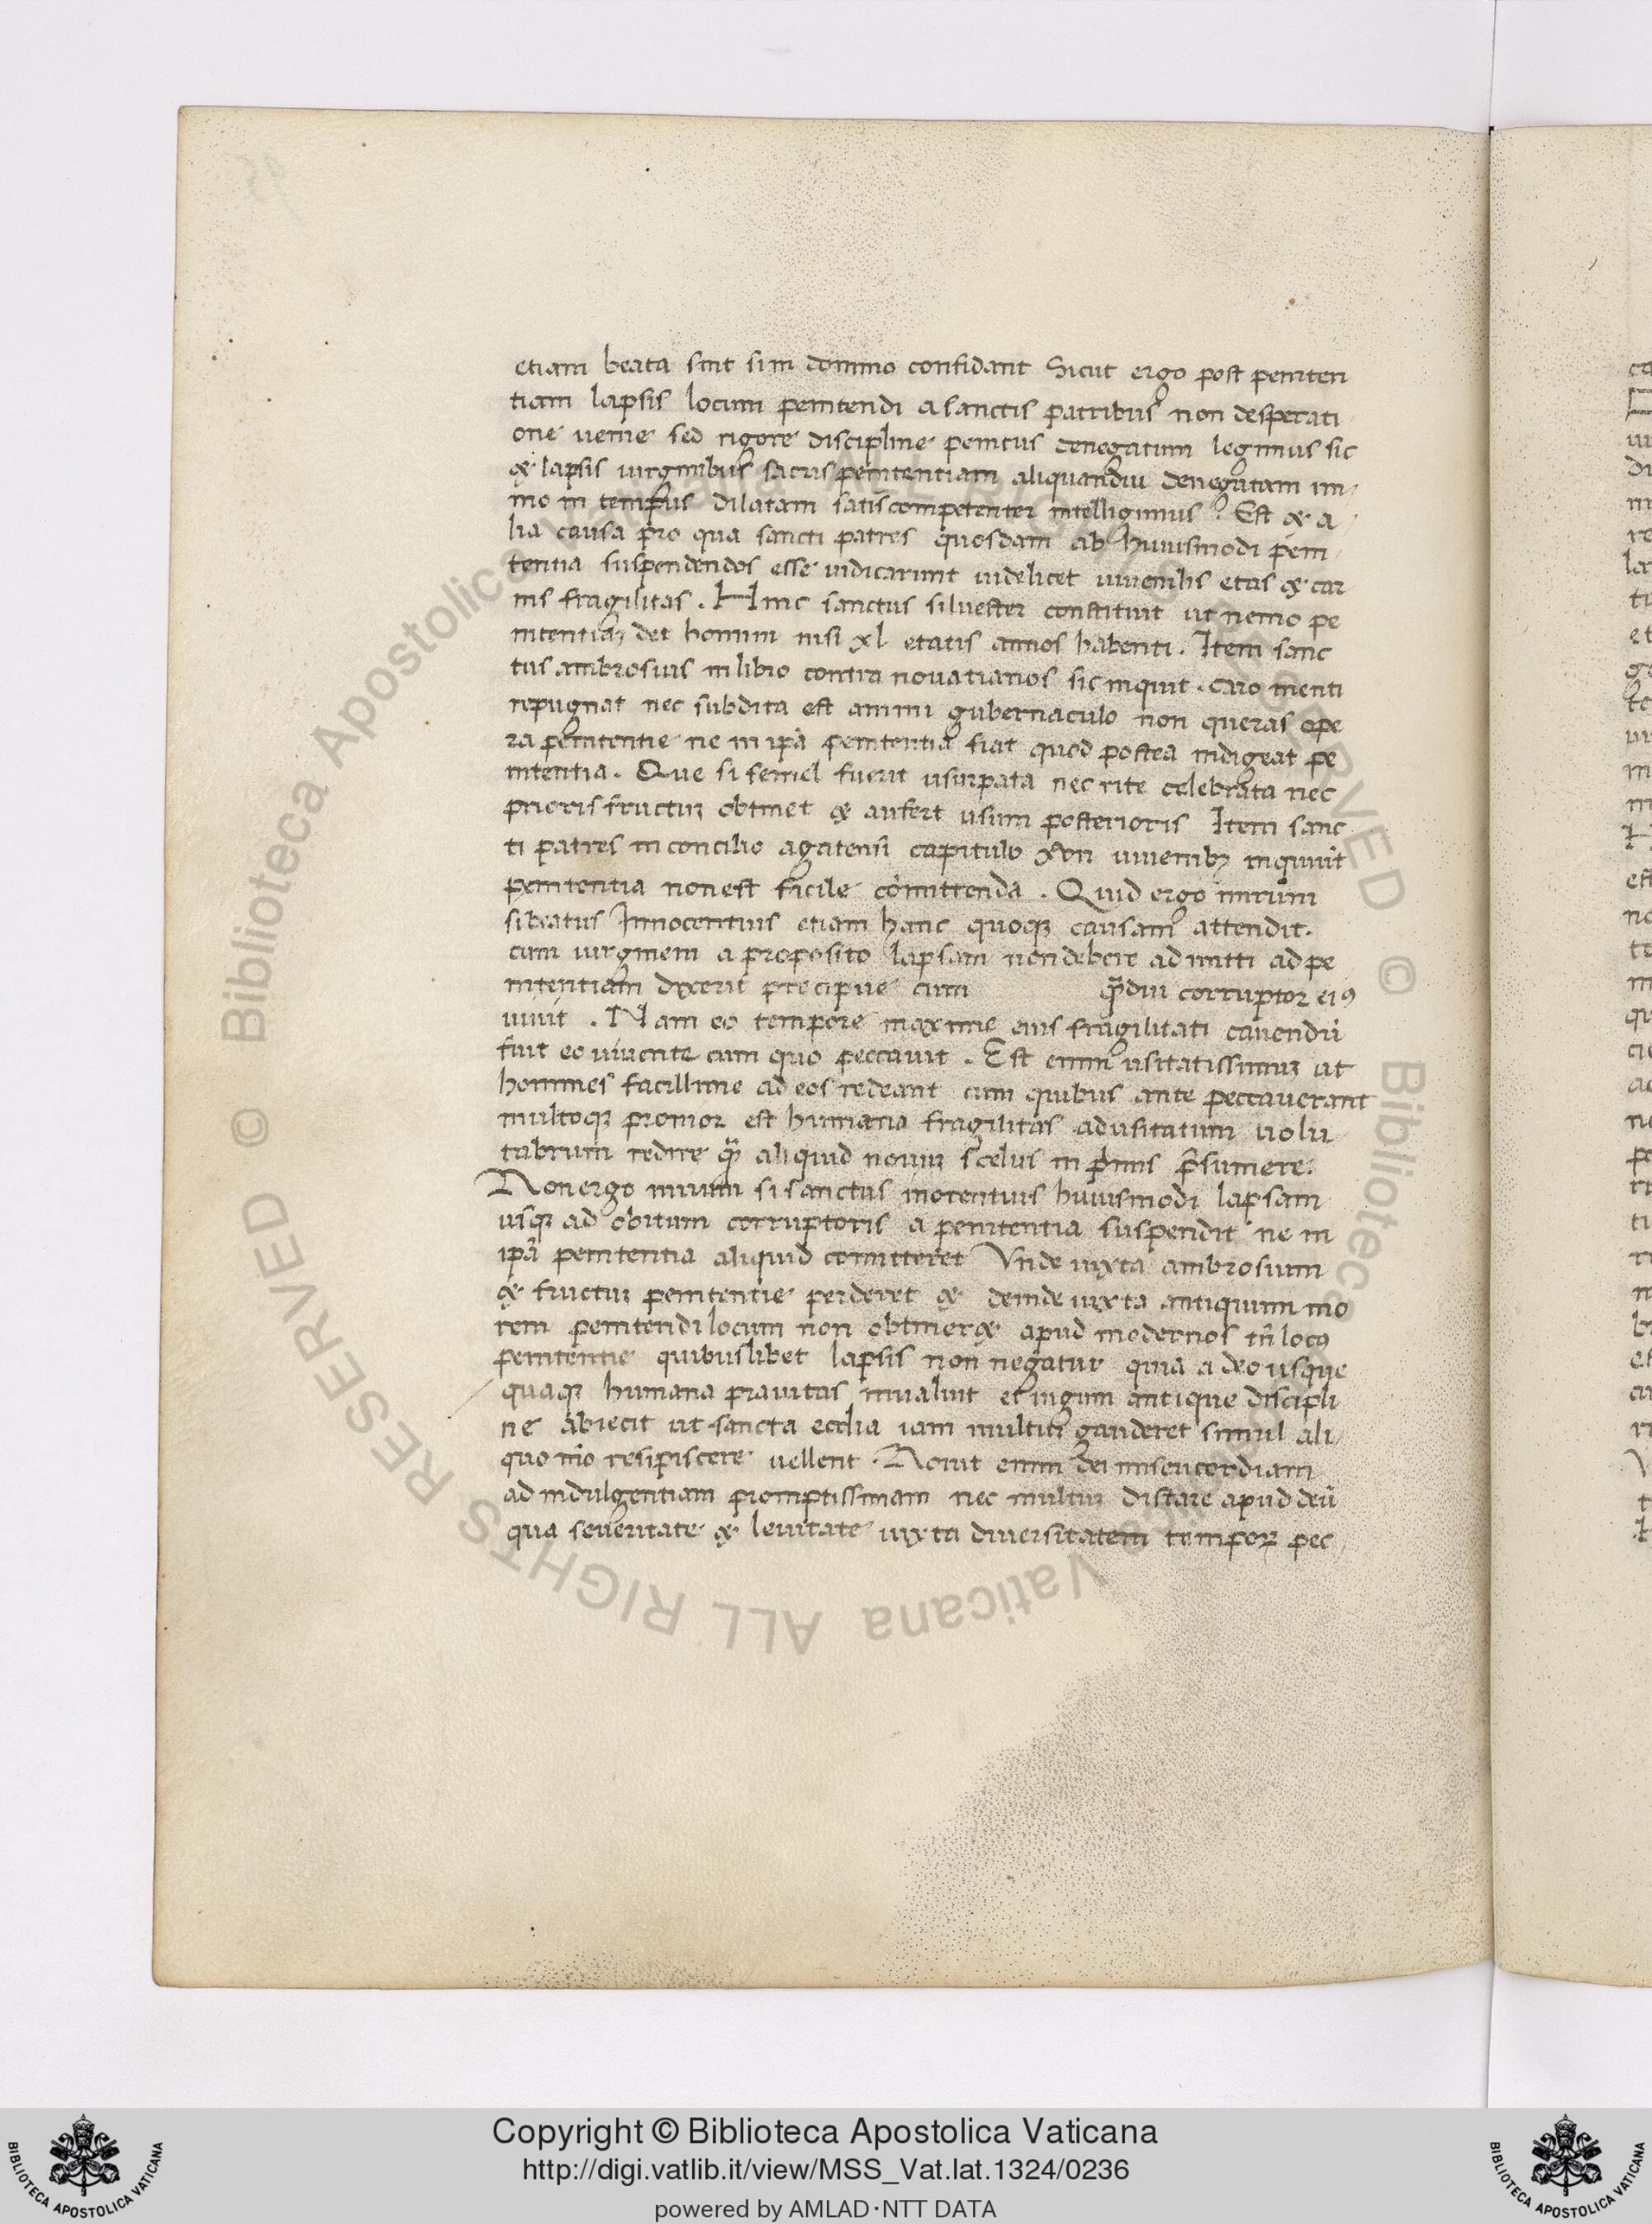 etiam beata sint si in domino confidant Sicut ergo post peniten
tiam lapsis locum penitendi a sanctis patribus non desperati
one uenie sed rigore discipline penitus denegatum legimus sic
& lapsis uirginibus sacris penitentiam aliquandiu denegatam im
mo in tempus dilatam satis competenter intelligimus. Est & a
lia causa pro qua sancti patres quosdam ab huiusmodi peni
tentia suspendendos esse iudicarunt uidelicet iuuenilis etas & car
nis fragilitas. Hinc sanctus siluester constituit ut nemo pe
nitentiaʒ det homini nisi xl etatis annos habenti. Item sanc
tus ambrosius in libro contra nouatianos sic inquit. caro menti
repugnat nec subdita est animi gubernaculo non queras ope
ra penitentie ne in ip̄a penitentia fiat quod postea indigeat pe
nitentia. Que si semel fuerit usurpata nec rite celebrata nec
prioris fructuʒ obtinet & aufert usum posterioris Item sanc
ti patres in concilio agatensi capitulo xvii iuuenibʒ inquiunt
penitentia non est facile cōmittenda. Quid ergo mirum
si beatus Innocentius etiam hanc quoqʒ causam attendit.
cum uirginem a proposito lapsam non debere admitti ad pe
nitentiam dixerit precipue cum q̄diu corruptor eiꝰ
uiuit. Nam eo tempore maxime eius fragilitati cauendū
fuit eo uiuente cum quo peccauit. Est enim usitatissimuʒ ut
homines facillime ad eos redeant cum quibus ante peccauerant
multoqʒ pronior est humana fragilitas ad usitatum uolu
tabrum redire q̄ aliquid nouuʒ scelus in primis p̄sumere.
Non ergo mirum si sanctus inocentius huiusmodi lapsam
usqʒ ad obitum corruptoris a penitentia suspendit ne in
ip̄a penitentia aliquid comitteret Vnde iuxta ambrosium
& fructuʒ penitentie perderet & deinde iuxta antiquum mo
rem penitendi locum non obtiner& apud modernos tn̄ locꝰ
penitentie quibuslibet lapsis non negatur quia adeo usque
quaqʒ humana prauitas inualuit et iugum antique discipli
ne abiecit ut sancta ecclia iam multum gauderet simul ali
quo mō resipiscere uellent. Nouit enim dei misericordiam
ad indulgentiam promptissimam nec multuʒ distare apud deū
qua seueritate & leuitate iuxta diuersitatem temporꝝ pec
Copyright © Biblioteca Apostolica Vaticana
http://digi.vatlib.it/view/MSS_Vat.lat.1324/0236
powered by AMLAD·NTT DATA
BIBLIOTECA APOSTOLICA VATICANA
BIBLIOTECA APOSTOLICA VATICANA
© Biblioteca Apostolica Vaticana ALL RIGHTS RESERVED
© Biblioteca Apostolica Vaticana ALL RIGHTS RESERVED